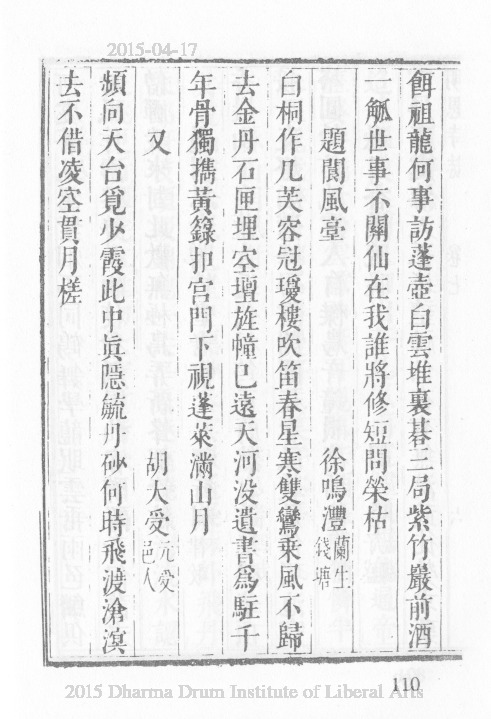 2015-04-17
餌祖龍何事訪蓬壺白雲堆裏碁三局紫竹巖前酒
觚世事不關仙在我誰將修短問榮枯
題閬風臺 徐鳴灃 蘭生 錢塘
白桐作几芙容冠瓊樓吹笛春星寒雙鸞乗風不歸
去金丹石匣埋空壇旌幢已遠天河没遺書為駐千
年骨獨擕黃籙扣宮門下視蓬萊滿山月
又 胡大受 元受 邑人
頻向天台覓少霞此中眞隱毓丹砂何時飛渡滄溟
去不借凌空貫月槎
110
2015 Dharma Drum Institute of Liberal Arts